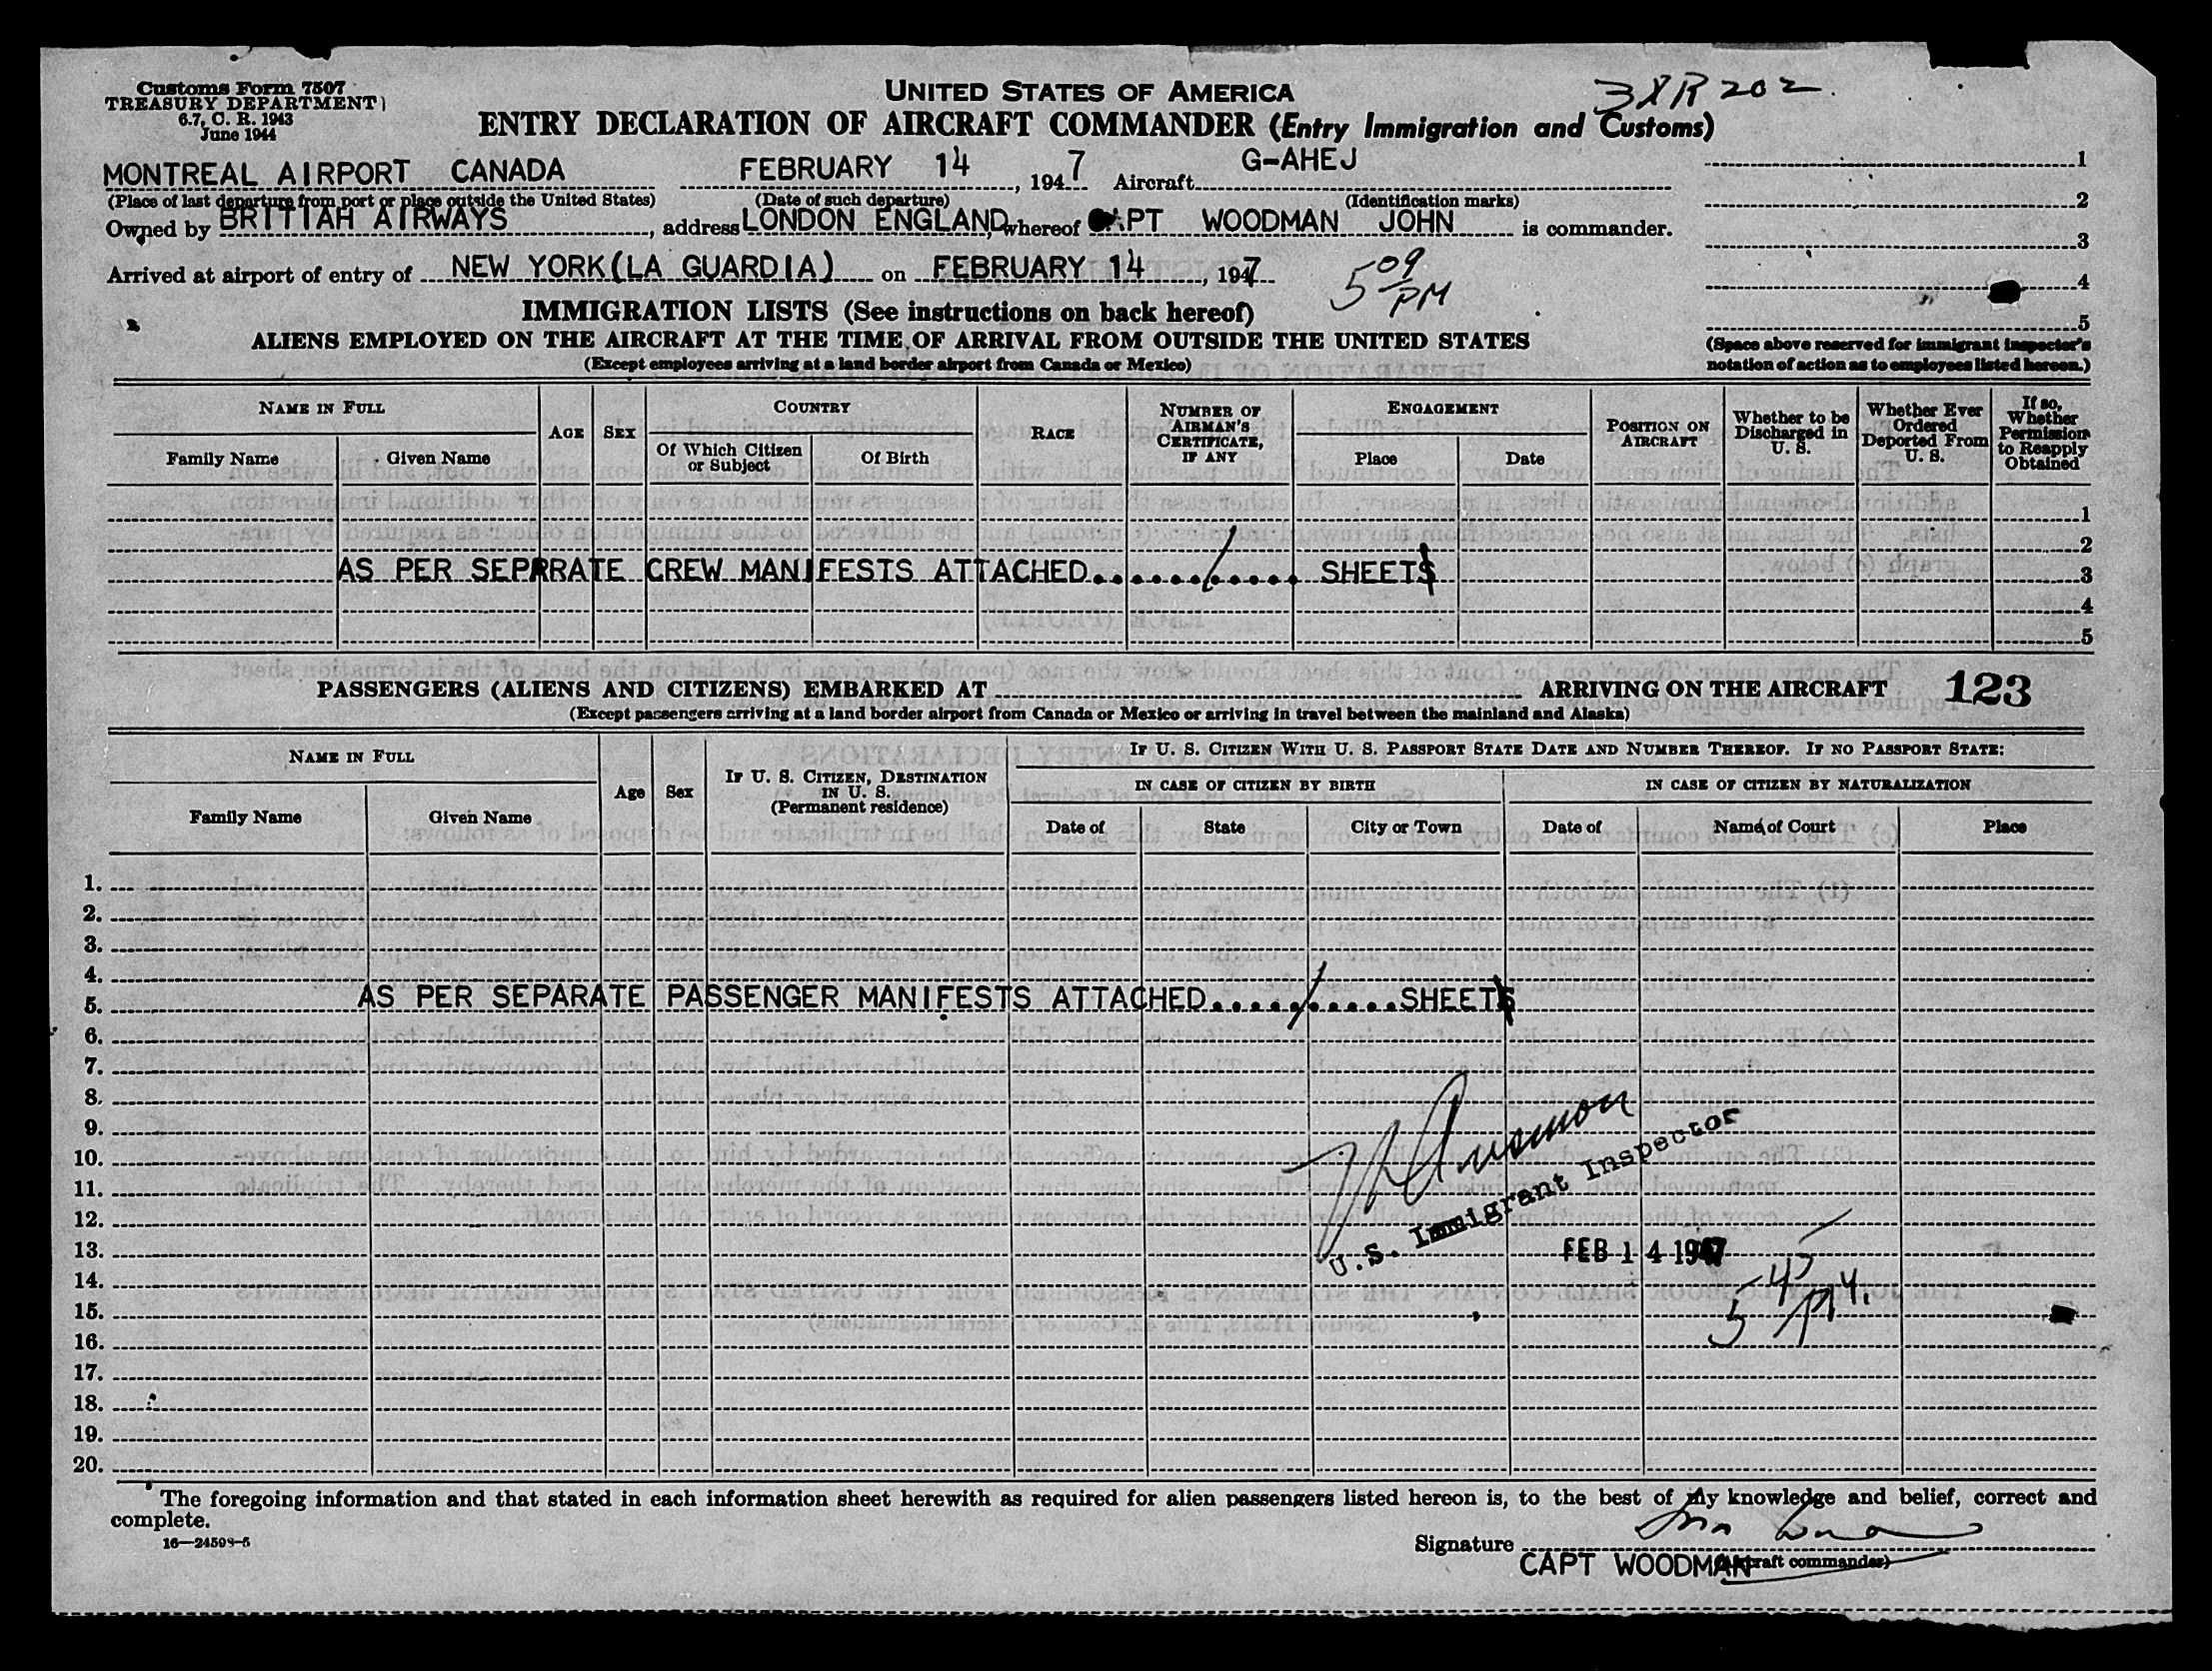 Customs Form 7507
TREASURY DEPARTMENT
6.7, C. R. 1943
June 1944
UNITED STATES OF AMERICA
3XR202
ENTRY DECLARATION OF AIRCRAFT COMMANDER (Entry Immigration and Customs)
MONTREAL AIRPORT CANADA FEBRUARY 14, 1947 Aircraft G-AHEJ
(Place of last departure from port or place outside the United States) (Date of such departure) (Identification marks)
Owned by BRITIAH AIRWAYS, address LONDON ENGLAND, whereof CAPT WOODMAN JOHN is commander.
Arrived at airport of entry of NEW YORK (LA GUARDIA) on FEBRUARY 14, 1947
5 09 PM
1
2
3
4
5
(Space above reserved for immigrant inspector's
notation of action as to employees listed hereon.)
IMMIGRATION LISTS (See instructions on back hereof)
ALIENS EMPLOYED ON THE AIRCRAFT AT THE TIME OF ARRIVAL FROM OUTSIDE THE UNITED STATES
(Except employees arriving at a land border airport from Canada or Mexico)
NAME IN FULL
Family Name
Given Name
AGE
SEX
COUNTRY
Of Which Citizen or Subject
Of Birth
RACE
NUMBER OF AIRMAN'S CERTIFICATE, IF ANY
ENGAGEMENT
Place
Date
POSITION ON AIRCRAFT
Whether to be Discharged in U. S.
Whether Ever Ordered Deported From U. S.
If so, Whether Permission to Reapply Obtained
1
2
AS PER SEPRRATE CREW MANIFESTS ATTACHED......1...... SHEETS 3
4
5
PASSENGERS (ALIENS AND CITIZENS) EMBARKED AT ARRIVING ON THE AIRCRAFT 123
(Except passengers arriving at a land border airport from Canada or Mexico or arriving in travel between the mainland and Alaska)
NAME IN FULL
Family Name
Given Name
Age
Sex
IF U. S. CITIZEN, DESTINATION IN U. S.
(Permanent residence)
IF U. S. CITIZEN WITH U. S. PASSPORT STATE DATE AND NUMBER THEREOF. IF NO PASSPORT STATE:
IN CASE OF CITIZEN BY BIRTH
Date of
State
City or Town
IN CASE OF CITIZEN BY NATURALIZATION
Date of
Name of Court
Place
1.
2.
3.
4.
5. AS PER SEPARATE PASSENGER MANIFESTS ATTACHED.....1.....SHEETS
6.
7.
8.
9.
10.
11.
12.
U.S. Immigrant Inspector
13. FEB 14 1947
14.
15.
16.
17.
18.
19.
20.
The foregoing information and that stated in each information sheet herewith as required for alien passengers listed hereon is, to the best of my knowledge and belief, correct and
complete.
16—24598-5
Signature
CAPT WOODMAN (Aircraft commander)